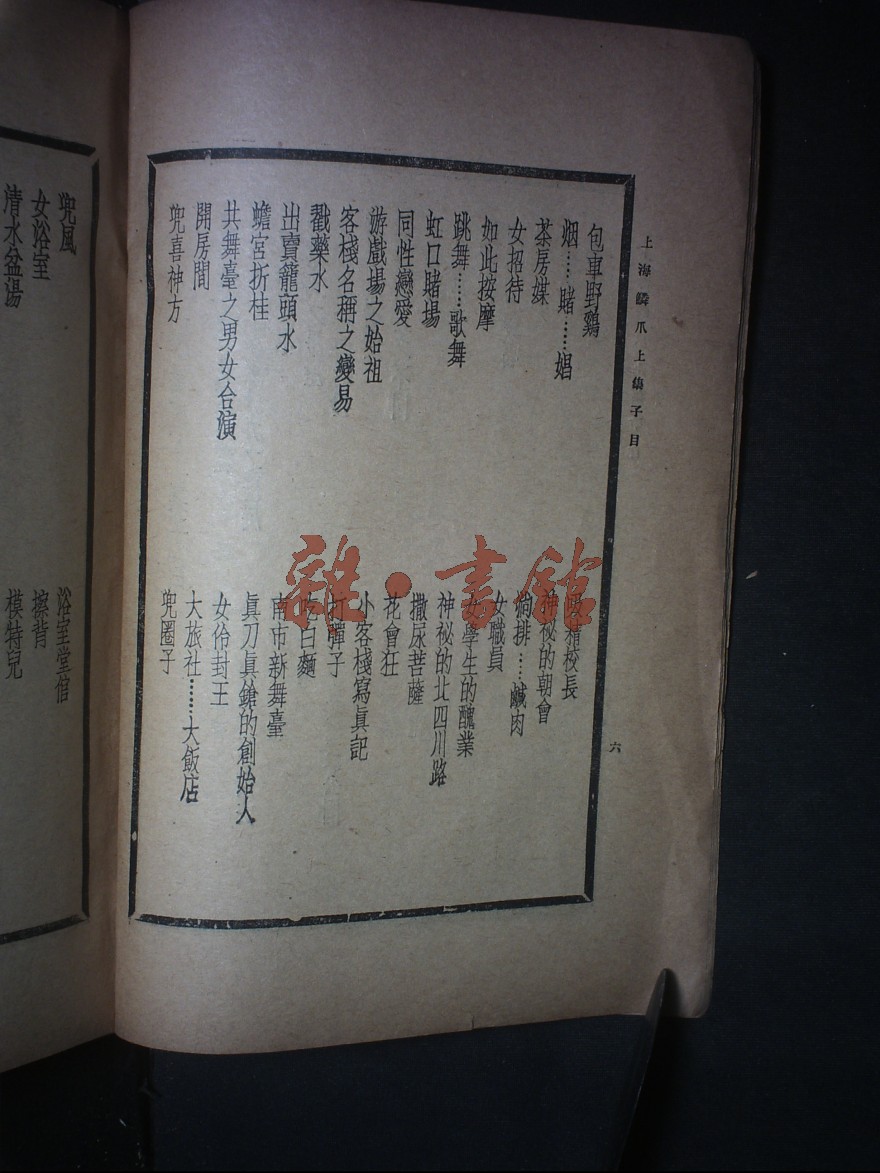 上海鱗爪上集子目
六
包車野鷄
烟……賭……娼
茶房媒
女招待
如此按摩
跳舞……歌舞
虹口賭場
同性戀愛
游戲場之始祖
客棧名稱之變易
戳藥水
出賣籠頭水
蟾宮折桂
共舞臺之男女合演
開房間
兜喜神方
吸精校長
神秘的朝會
淌排……鹹肉
女職員
女學生的醜業
神祕的北四川路
撒尿菩薩
花會狂
小客棧寫眞記
打彈子
吃白麵
南市新舞臺
眞刀眞鎗的創始人
女伶封王
大旅社……大飯店
兜圈子
兜風
女浴室
清水盆湯
浴室堂倌
擦背
模特兒
雜·書館